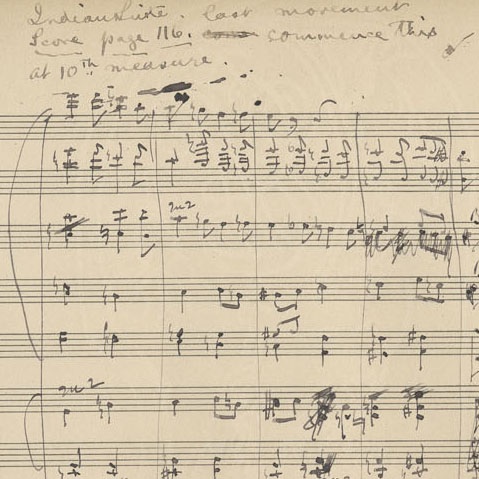 Indian Suite. last movement
Score page 116. commence this
at 10th measure.
in 2
in 2